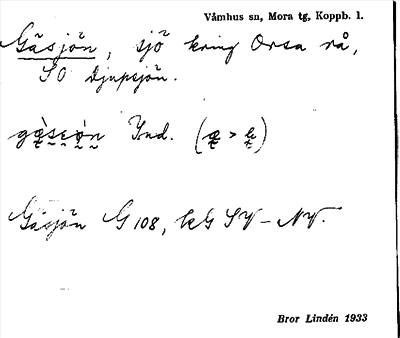 Våmhus sn, Mora tg, Koppb. l.
Gäsjön, sjö kring Orsa rå,
SO Djupsjön.
Ind.
Gäsjön G 108, kG SV - NV.
Bror Lindén 1933